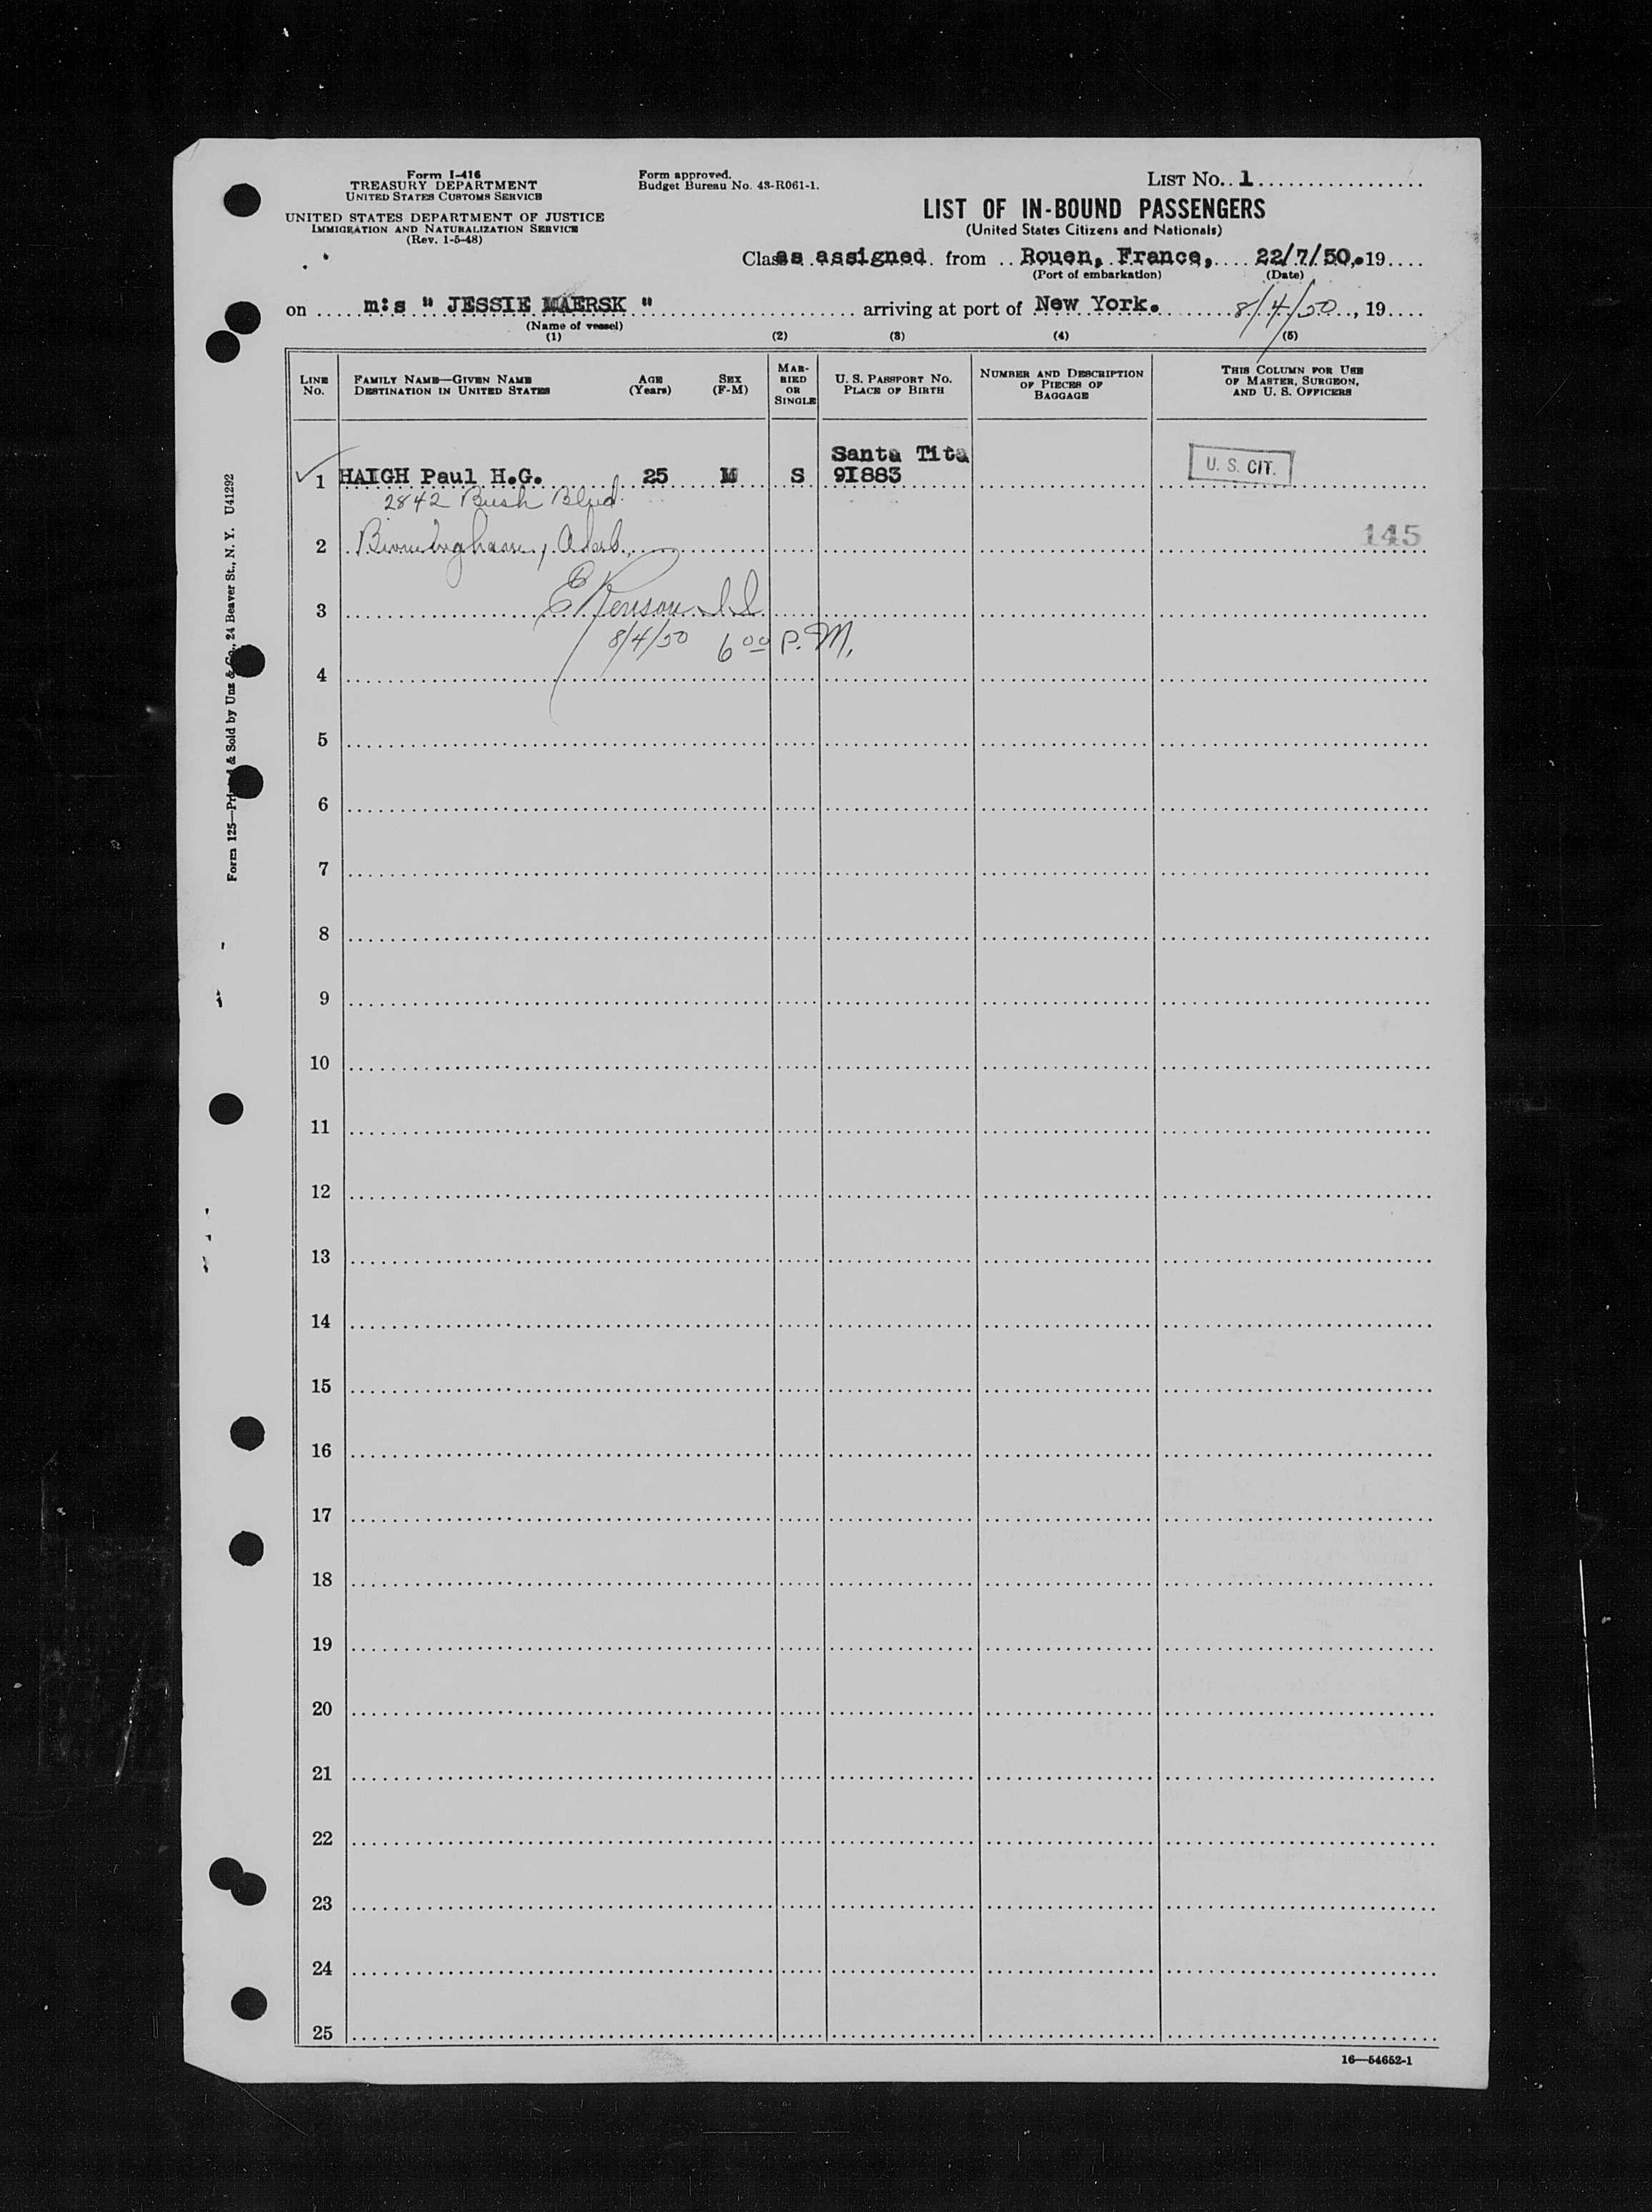 Form I-416
TREASURY DEPARTMENT
UNITED STATES CUSTOMS SERVICE
UNITED STATES DEPARTMENT OF JUSTICE
IMMIGRATION AND NATURALIZATION SERVICE
(Rev. 1-5-48)
Form approved.
Budget Bureau No. 43-R061-1.
LIST No. 1
LIST OF IN-BOUND PASSENGERS
(United States Citizens and Nationals)
Class as assigned from Rouen, France, 22/7/50, 19
(Port of embarkation) (Date)
on m:s " JESSIE MAERSK " arriving at port of New York. 8/4/50, 19
(Name of vessel)
(1) (2) (3) (4) (5)
LINE No. FAMILY NAME—GIVEN NAME DESTINATION IN UNITED STATES AGE (Years) SEX (F-M) MARRIED OR SINGLE U. S. PASSPORT No. PLACE OF BIRTH NUMBER AND DESCRIPTION OF PIECES OF BAGGAGE THIS COLUMN FOR USE OF MASTER, SURGEON, AND U. S. OFFICERS
Santa Tita
1 HAIGH Paul H.G. 25 M S 91883 U. S. CIT.
2842 Bush Blvd.
2 Birmingham, Alab. 145
3
8/4/50 6 00 P.M.
4
5
6
7
8
9
10
11
12
13
14
15
16
17
18
19
20
21
22
23
24
25
16—54652-1
Form 125—Printed & Sold by Unz & Co., 24 Beaver St., N. Y. U41292